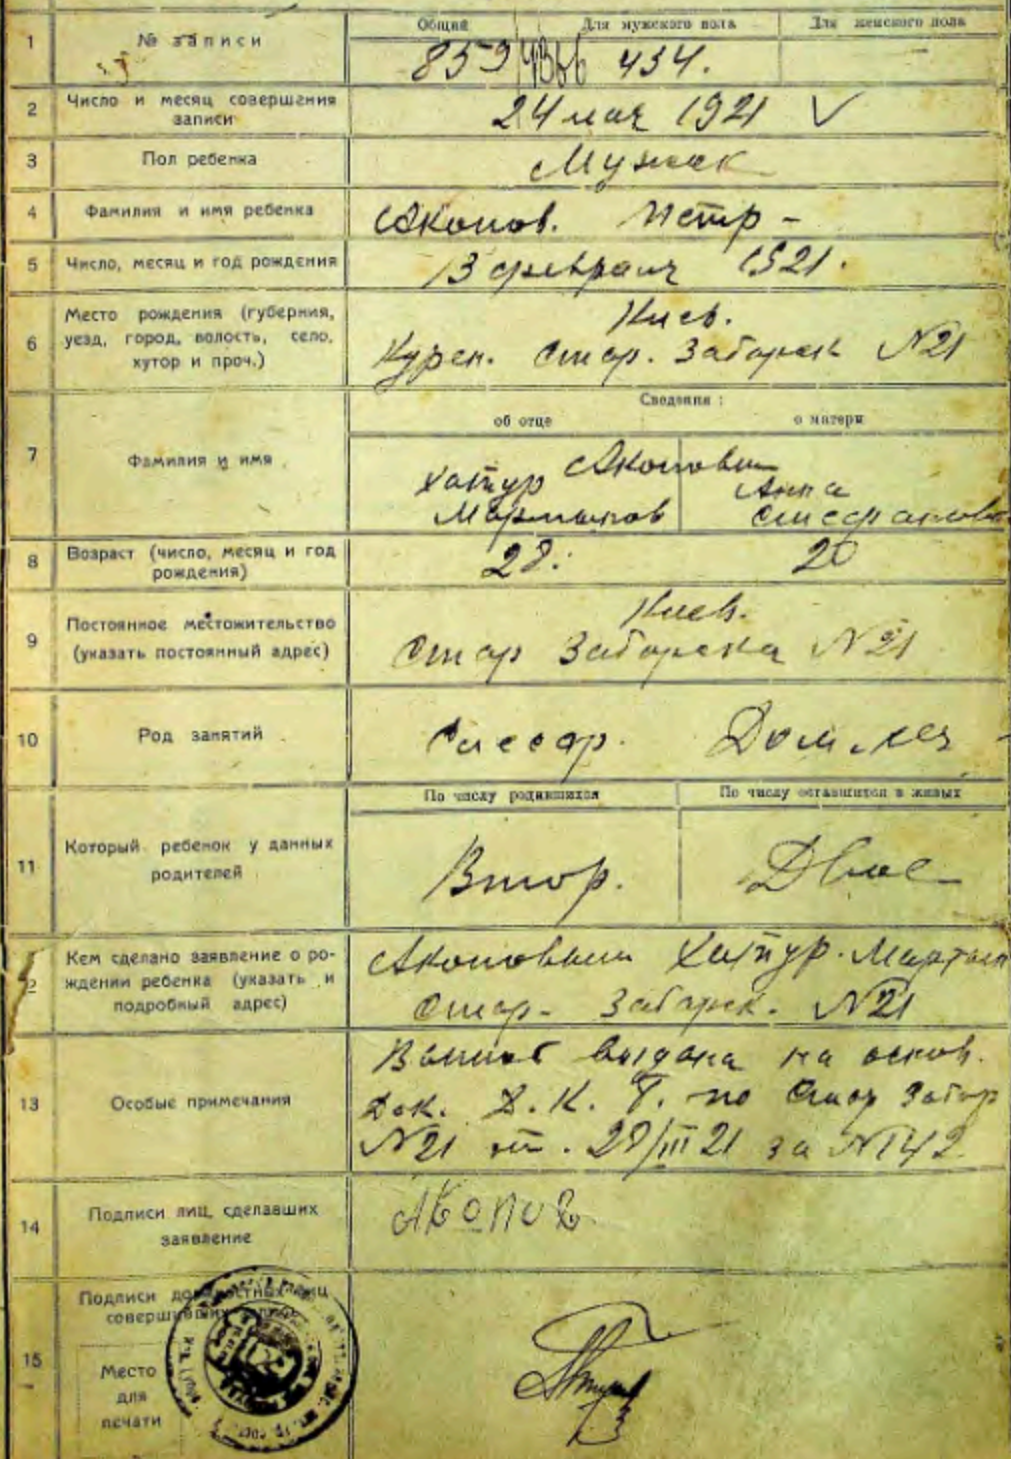 Общий Для мужского пола Для женского пола
1 № записи 859 434.
2 Число и месяц совершения
записи
24 мая 1921
3 Пол ребенка Мужск
4 Фамилия и имя ребенка Акопов. Петр -
5 Число, месяц и год рождения 13 февраля 1921.
6 Место рождения (губерния,
уезд, город, волость, село,
хутор и проч.)
Киев.
Курен. Стар. Забарск №21
Сведения:
об отце о матери
7 Фамилия и имя
Акоповы
Хатчур Анна
Мартынов Стефановна
8 Возраст (число, месяц и год
рождения)
28. 20
9 Постоянное местожительство
(указать постоянный адрес)
Киев.
Стар Забарска №21
10 Род занятий Слесар. Дом.
По числу родившихся По числу оставшихся в живых
11 Который ребенок у данных
родителей
Втор. Двое
Кем сделано заявление о ро-
ждении ребенка (указать и
подробный адрес)
Акоповым Хатчур. Мартын
Стар. Забарск. №21
13 Особые примечания
выдана на основ.
Док. Д. К. по Стар Забар
№21 от. 28/III 21 за №142
14 Подписи лиц, сделавших
заявление
Акопов
15 Подписи должностных лиц
совершивших
Место
для
печати